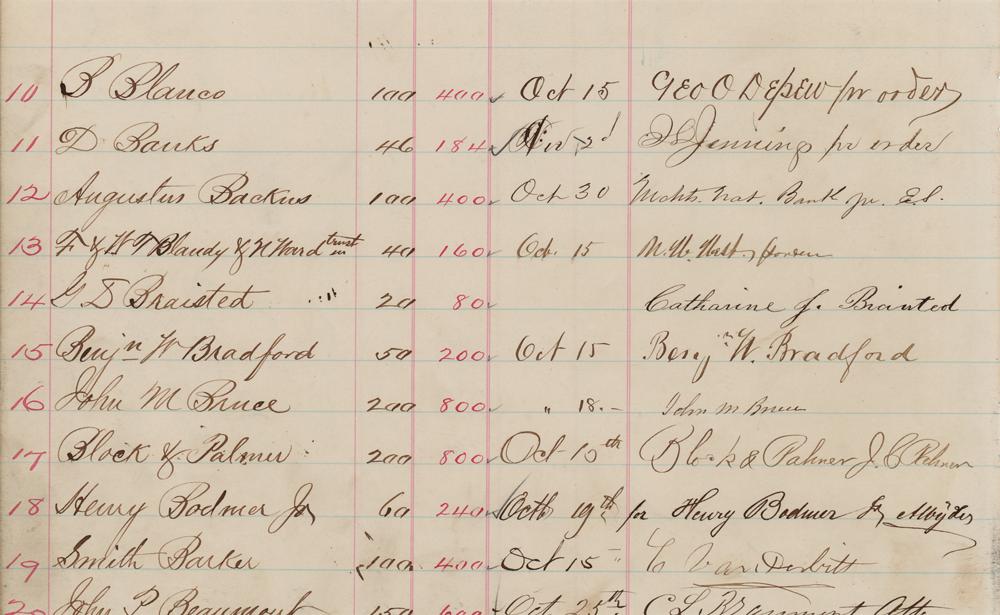 10 B Blanco 100 400 Oct 15 Geo O Depew pr order
11 D Banks 46 184 2d Jennings pr order
12 Augustus Backus 100 400 Oct 30 Mchts. Nat. Bank pr.
13 F & W T Blandy & N Ward trust in 40 160 Oct. 15
14 G D Braisted 20 80 Catharine J. Braisted
15 Benjn W Bradford 50 200 Oct 15 Benjn W. Bradford
16 John M Bruce 200 800 " 18. - John M Bruce
17 Block & Palmer 200 800 Oct 15th Block & Palmer J. C Palmer
18 Henry Bodmer Jr 60 240 Octb 19th for Henry Bodmer Jr
19 Smith Barker 100 400 Oct 15 C Vanderbilt
20 John P Beaumont 150 600 Oct 25th C L Beaumont Atty